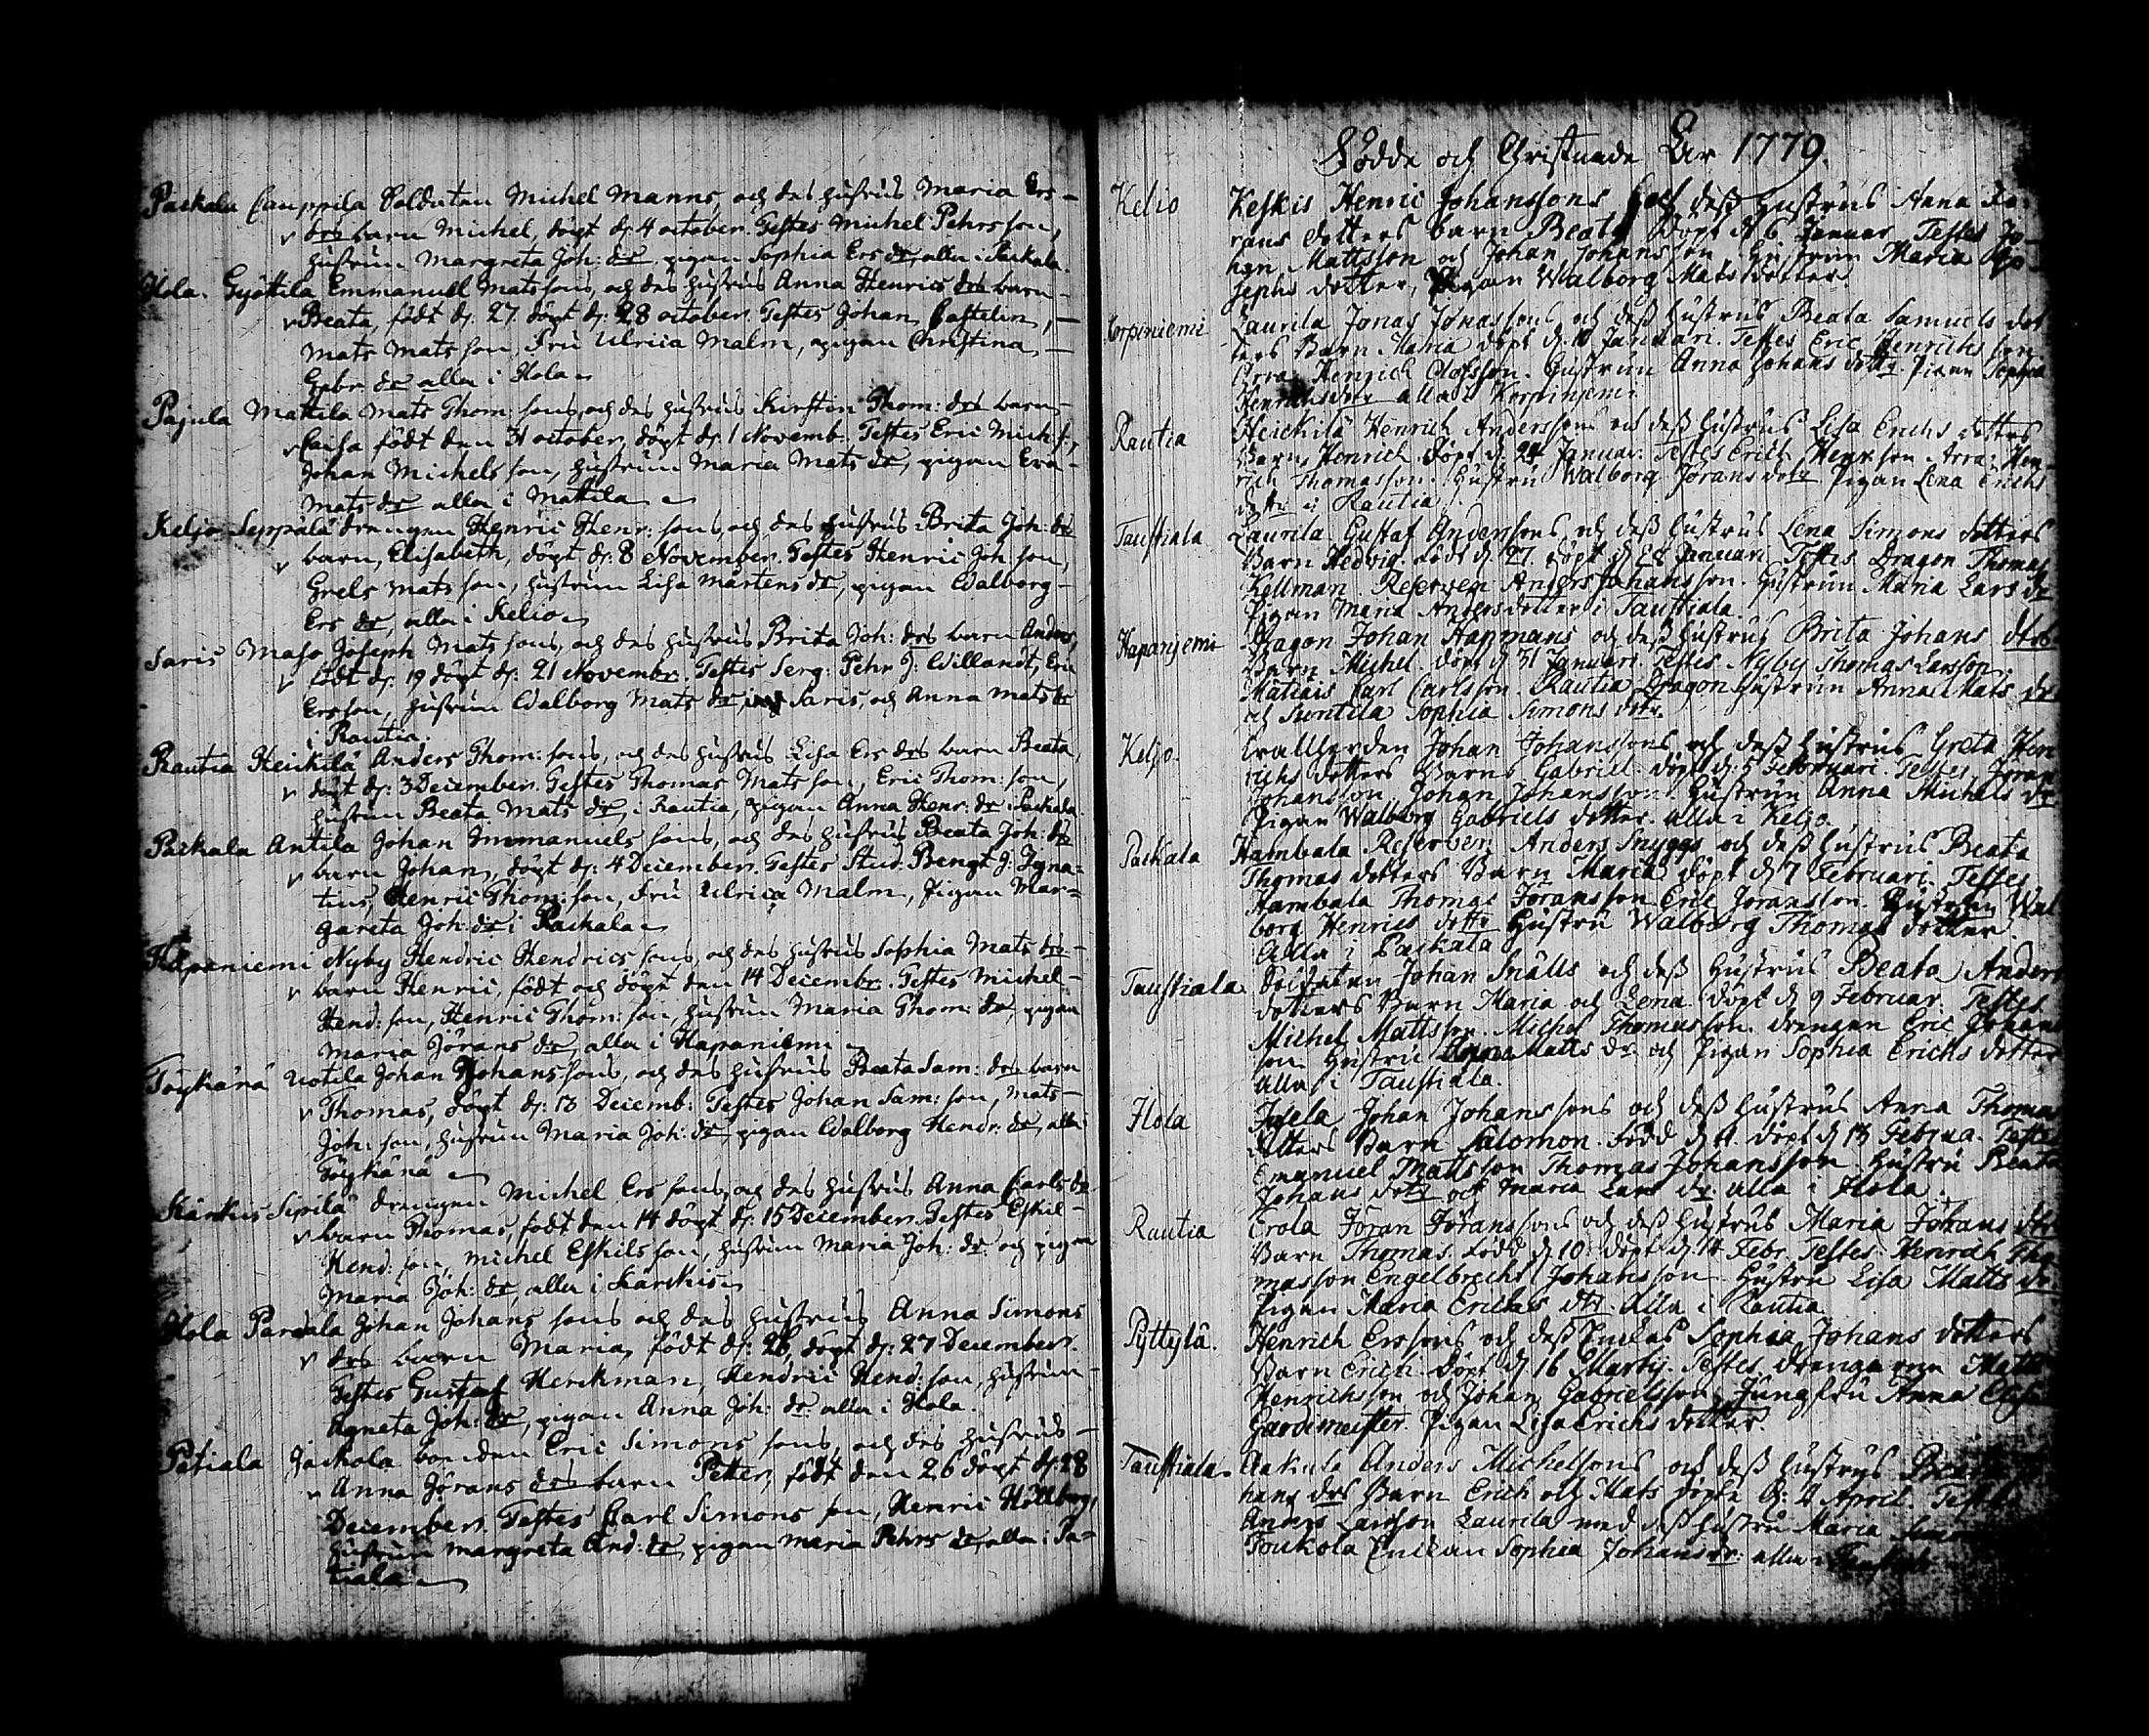 Packala Cauppila Soldaten Michel Manns, och des hustrus Maria Ers-
drs barn Michel, döpt d: 4 october. Testes Michel Pehrsson,
hustrun Margreta Joh: dr pigan Sophia Ers dr, alla i Packala.
Hola. Gyöttilä Emmanuel Matssons, och des hustrus Anna Henrics drs barn-
Beata, födt d: 27 döpt d: 28 october. Testes Johan Castelin,
Mats Matsson, Fru Ulrica Malm, pigan Christina,
Gabr: dr alla i Hola
Pajula Mattila Mats Thom: sons, och des hustrus Kirsten Thom: drs barn
Caisa födt den 31 october, döpt d: 1 Novemb. Testes Eric Mich: s:,
Johan Michelsson, hustrun Maria Mats dr, pigan Eva
Mats dr alla i Mattila
Keljo Seppälä drengen Henric Henr: sons, och des hustrus Brita Joh: drs
barn, Elisabeth, döpt d: 8 November. Testes Henric Joh: son,
Grels Matsson, hustrun Lisa Mårtens dr, pigan Walborg
Ers dr, alla i Kelio
Saris Maso Joseph Matssons, och des hustrus Brita Joh: drs barn Anders,
födt d: 19 döpt d: 21 Novembr. Testes Serg: Pehr J: Willandt, Eric
Ersson, hustrun Walborg Mats dr, i Saris, och Anna Mats dr
i Rautia.
Rautia Heickilä Anders Thom: sons, och des hustrus Lisa Ers drs barn Beata,
döpt d: 3 December. Testes Thomas Matsson, Eric Thom: son,
hustrun Beata Mats dr, i Rautia, pigan Anna Henr: dr i Packala
Packala Antila Johan Immanuels sons, och des hustrus Beata Joh: drs
barn Johan, döpt d: 4 December. Testes Stud: Bengt J: Igna-
tius, Henric Thom: son, Fru Ulrica Malm, Pigan Mar-
gareta Joh: dr i Packala
Hapaniemi Nyby Hendric Hendrics sons, och des hustrus Sophia Mats drs
barn Henric, födt och döpt den 14 Decembr. Testes Michel
Hend: son, Henric Thom: son, hustrun Maria Thom: dr, pigan
Maria Jörans dr, alla i Hapaniemi
Töykänä Uotila Johan Johans sons, och des hustrus Beata Sam: drs barn
Thomas, döpt d: 13 Decemb: Testes Johan Sam: son, Mats
Joh: son, hustrun Maria Joh: dr, pigan Walborg Hendr: dr, alla i
Töykänä
Kärkis Sipilä drengen Michel Ers sons, och des hustrus Anna Carls drs
barn Thomas, födt den 14 döpt d: 15 December. Testes Eskil
Hend: son, Michel Eskils son, hustrun Maria Joh: dr och pigan
Maria Joh: dr, alla i Kärckis
Hola Parcala Johan Johans sons och des hustrus Anna Simons
drs barn Maria, födt d: 26, döpt d: 27 December.
Testes Gustaf Herckman, Hendric Hend: son, hustrun
Agneta Joh: dr, pigan Anna Joh: dr alla i Hola.
Patiala Jackola bonden Eric Simons sons, och des hustrus
Anna Jörans drs barn Petter, födt den 26 döpt d: 28
December. Testes Carl Simons son, Henric Hollberg,
hustrun Margreta And: dr, pigan Maria Pehrs dr, alla i Pa-
tiala
Födde och Christnade År 1779.
Kelio Keskis Henric Johanssons och dess hustrus Anna Jö-
rans dotters barn Beata döpt d 6 Januar Testes Jo-
han Mattsson och Johan Johansson. Hustrun Maria Jo-
sephs dotter, Pigan Walborg Mats dotter.
Korpiniemi Laurila Jonas Jonassons och dess hustrus Beata Samuels dot
ters Barn Maria döpt d. 10 Januari. Testes Eric Henrichsson
Henrich Olofsson. Hustrun Anna Johans dottr Pigan Sophia
Henrichs dotr alla i Korpiniemi
Rautia Heickilä Henrich Anderssons och dess hustrus Lisa Erichs dotters
Barn Henrich döpt d. 24 Januar. Testes Erich Henr: son Hen-
rich Thomasson. Hustru Walborg Jörans dotr Pigan Lena Erichs
dottr i Rautia
Taustiala Laurila Gustaf Anderssons och dess hustrus Lena Simons dotters
Barn Hedvig. födt d. 27. döpt d. 28 Januari. Testes Dragon Thomas
Kellman. Reserven Anders Johansson. Hustrun Maria Lars dr
Pigan Maria Anders dotter i Taustiala.
Hapanjemi Dragon Johan Hapmans och dess hustrus Brita Johans dtrs
Barn Michel. döpt d 31 Januari. Testes Nyby Thomas Larsson
Matiais Carl Carlsson. Rautia Dragon hustrun Anna Mats dr
och Suntila Sophia Simons dotr.
Keljo. Johan Johanssons och dess hustrus Greta Hen
richs dotters Barn Gabriell. döpt d: 5 Februari. Testes Jöran
Johansson Johan Johansson. Hustrun Anna Michels dr
Pigan Walborg Gabriels dotter. alla i Keljo.
Packala Hambala Reserven Anders Snyggs och dess hustrus Beata
Thomas dotters Barn Maria döpt d 7 Februari. Testes
Hambala Thomas Joransson Eric Joransson. Hustrun Wal
borg Henrics dottr Hustru Walborg Thomas dotter
alla i Packala
Taustiala Soldaten Johan Snälls och dess hustrus Beata Anders
dotters Barn Maria och Lena. döpt d 9 Februar. Testes
Michel Mattsson. Michel Thomasson. drengen Eric Johans
son Hustru Matts dr och Pigan Sophia Erichs dotter
alla i Taustiala.
Hola Johan Johanssons och dess hustrus Anna Thomas
dotters Barn Salomon. född d 11. döpt d 13 Februa. Testes
Emanuel Mattsson Thomas Johansson. Hustru Beata
Johans dotr och Maria Lars dr alla i Hola.
Rautia Erola Jöran Jöranssons och dess hustrus Maria Johans dtrs
Barn Thomas. född d 10 döpt d. 14 Febr. Testes Henrich Tho
masson Engelbrecht Johansson Hustru Lisa Matts dr
Pigan Maria Erichs dtr. Alla i Rautia
Pyttylä. Henrich Erssons och dess Enckas Sophia Johans dotters
Barn Erich döpt d 16 Martij. Testes drengarne Matts
Henrichsson och Johan Gabrielsson, Jungfru Anna
Gardemeister. Pigan Lisa Erichs dotter.
Taustiala Aakula Anders Michelssons och dess hustrus
hans drs Barn Erich och Mats döpte d: 4 April. Testes
Anders Larsson Laurila med dess hustru Maria Simons
Poukola Enckan Sophia Johans dr: alla i